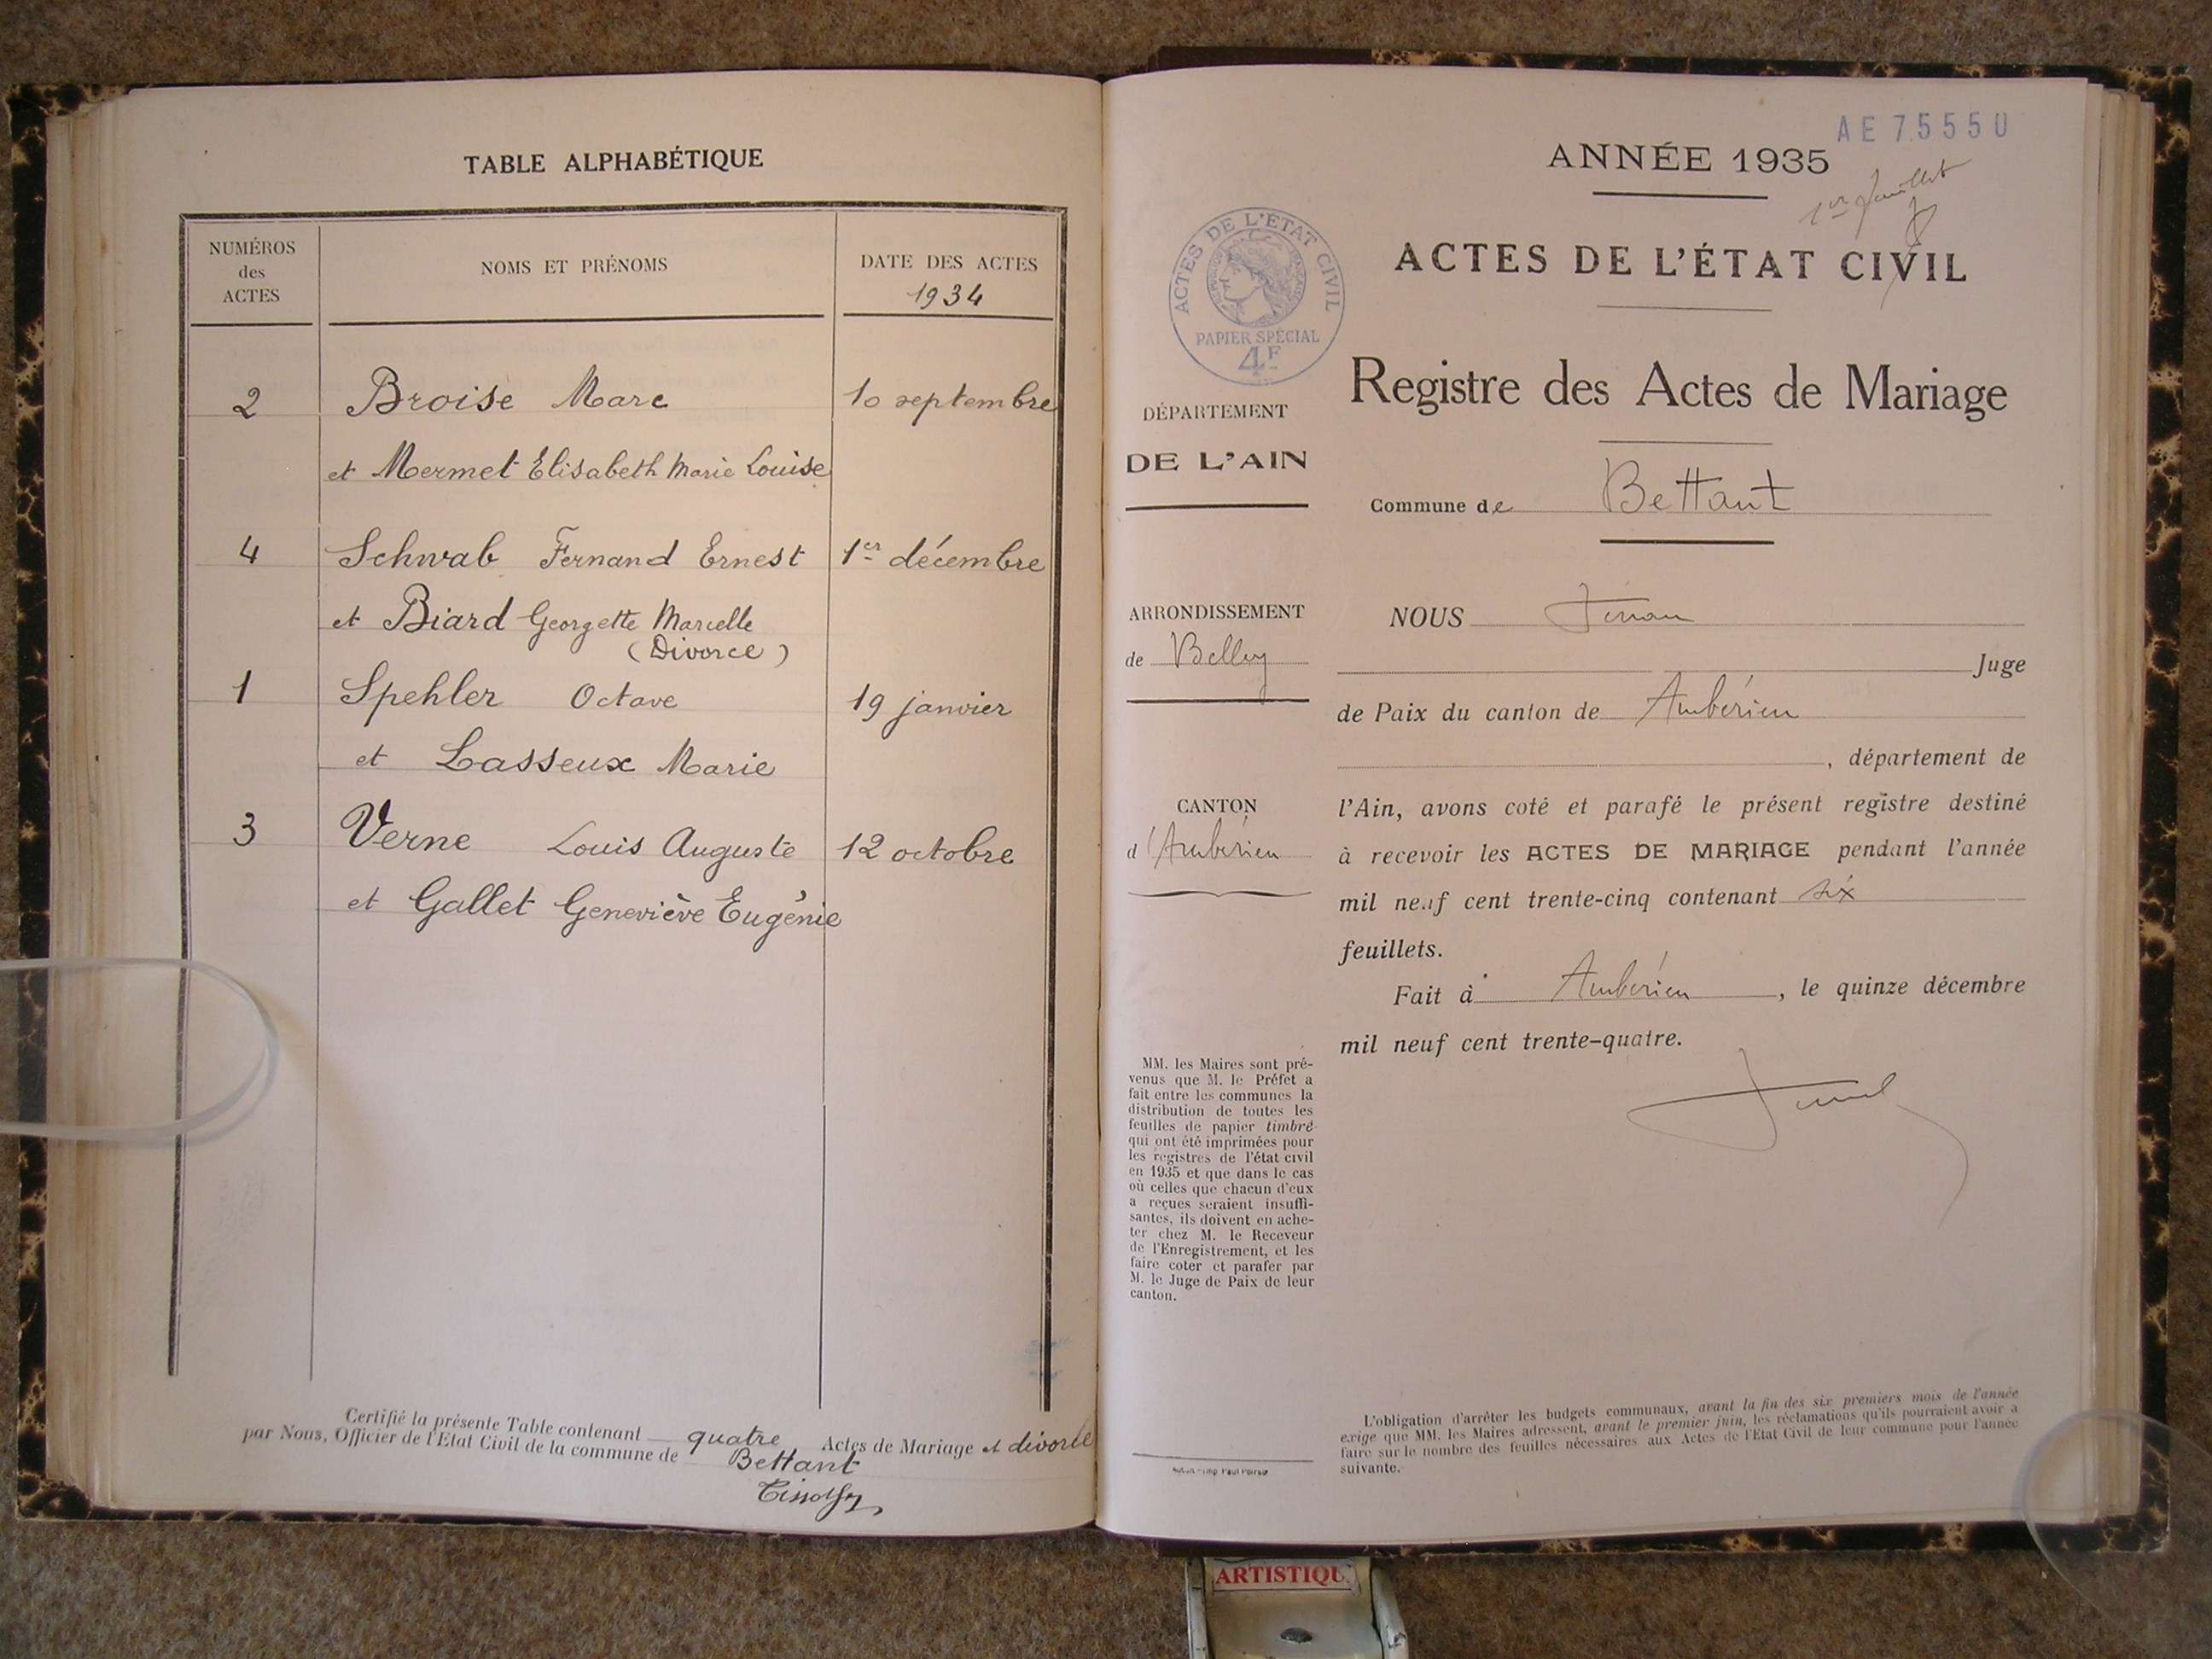 TABLE ALPHABÉTIQUE
NUMÉROS
des
ACTES
NOMS ET PRÉNOMS
DATE DES ACTES
1934
2 Broise Marc 10 septembre
et Mermet Elisabeth Marie Louise
4 Schwab Fernand Ernest 1er décembre
et Biard Georgette Marcelle
(Divorce)
1 Spehler Octave 19 janvier
et Lasseux Marie
3 Verne Louis Auguste 12 octobre
et Gallet Geneviève Eugénie
Certifié la présente Table contenant quatre Actes de Mariage et divorce
par Nous, Officier de l'Etat Civil de la commune de Bettant
AE 75550
ANNÉE 1935
1er feuillet
ACTES DE L'ÉTAT CIVIL
PAPIER SPÉCIAL
4F
ACTES DE L'ÉTAT CIVIL
Registre des Actes de Mariage
DÉPARTEMENT
DE L'AIN
Commune de Bettant
ARRONDISSEMENT
de Belley
CANTON
d'Ambérieu
NOUS
Juge
de Paix du canton de Ambérieu
, département de
l'Ain, avons coté et parafé le présent registre destiné
à recevoir les ACTES DE MARIAGE pendant l'année
mil neuf cent trente-cinq contenant six
feuillets.
Fait à Ambérieu, le quinze décembre
mil neuf cent trente-quatre.
MM. les Maires sont pré-
venus que M. le Préfet a
fait entre les communes la
distribution de toutes les
feuilles de papier timbré
qui ont été imprimées pour
les registres de l'état civil
en 1935 et que dans le cas
où celles que chacun d'eux
a reçues seraient insuffi-
santes, ils doivent en ache-
ter chez M. le Receveur
de l'Enregistrement, et les
faire coter et parafer par
M. le Juge de Paix de leur
canton.
L'obligation d'arrêter les budgets communaux, avant la fin des six premiers mois de l'année
exige que MM. les Maires adressent, avant le premier juin, les réclamations qu'ils pourraient avoir à
faire sur le nombre des feuilles nécessaires aux Actes de l'Etat Civil de leur commune pour l'année
suivante.
ARTISTIQU